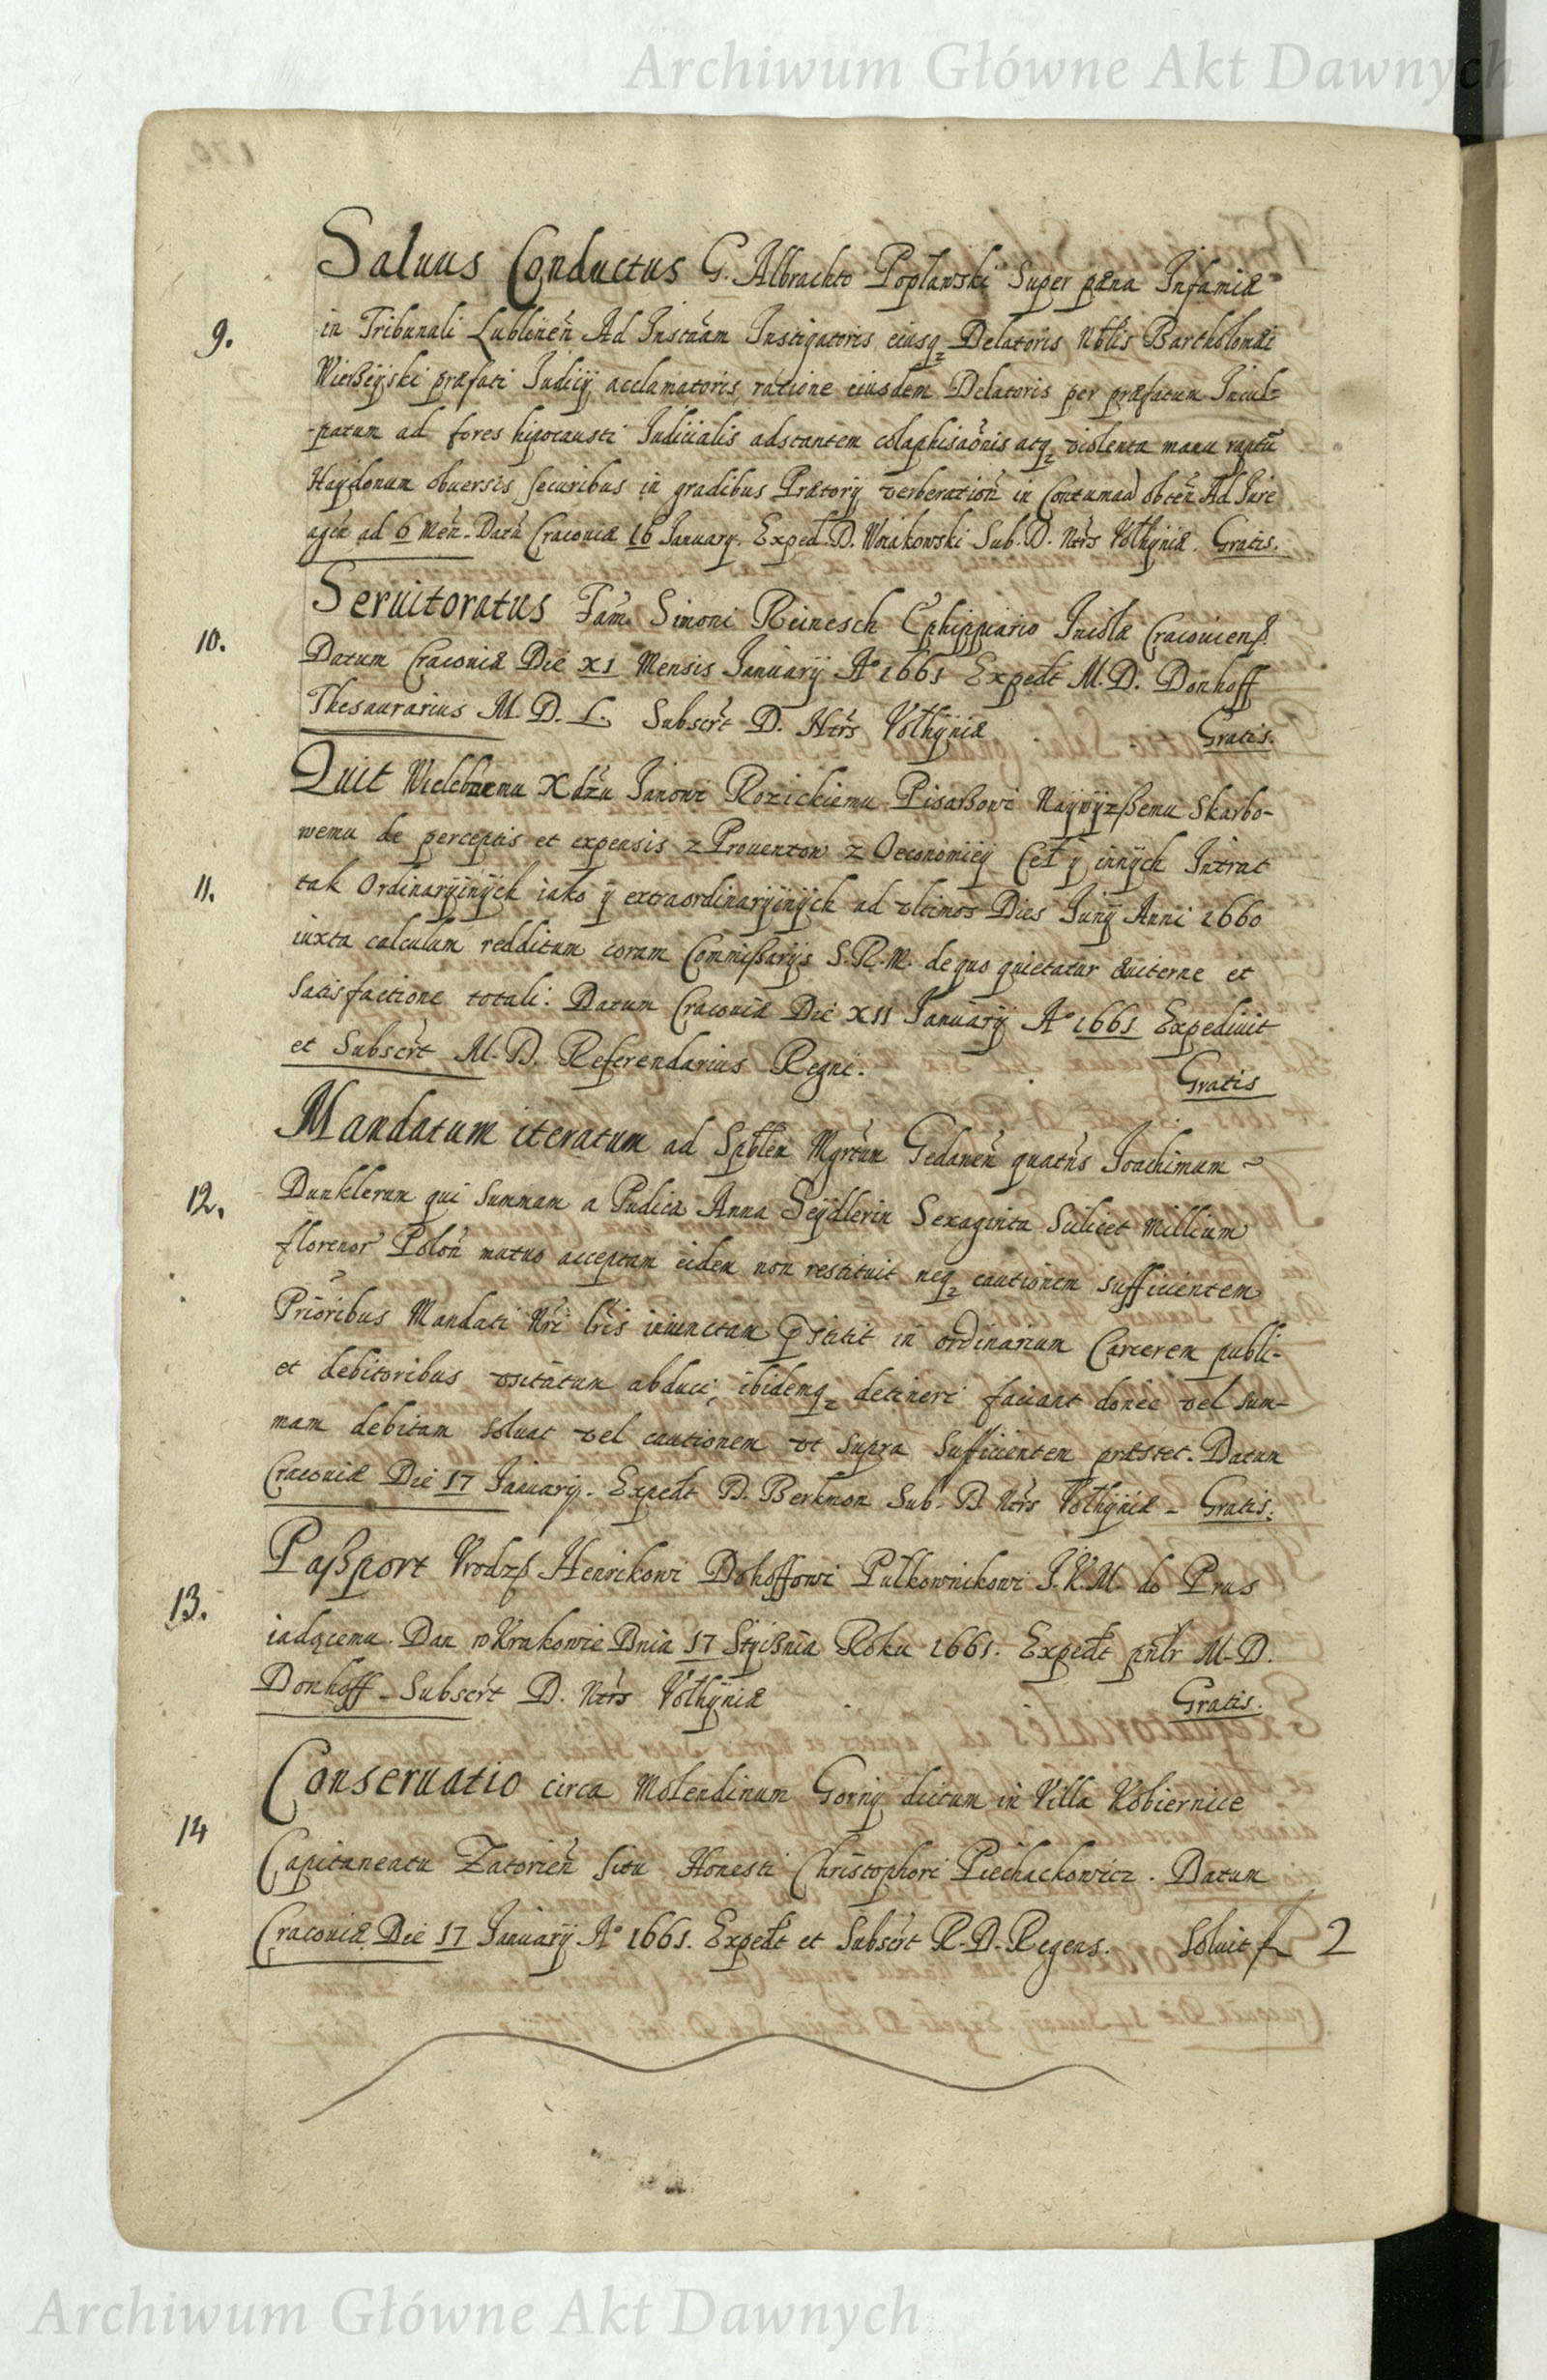 Archiwum Główne Akt Dawnych
Saluus Conductus G. Albrachto Popławski Super pæna Infamiæ
9. in Tribunali Lublineñ Ad Instãam Instigatoris eiusq Delatoris Nblis Bartholomæi
Wierßeyski præfati Iudicij acclamatoris, ratione eiusdem Delatoris per præfatum Incul=
-patum ad fores hipocausti Iudicialis adstantem colaphisaõnis atq violenta manu raptũ
Haydonum obuersis securibus in gradibus Prætorij verberatioñ in Contumaã obteñ Ad Iure
ageñ ad 6 Meñ. Datũ Cracouiæ 16 January. Exped D. Woiakowski Sub. D. Ntrs Vołhÿniæ. Gratis.
10. Seruitoratus Fam. Simoni Reinesch Ephippiario Incolæ Cracouiens.
Datum Cracouiæ Die XI Mensis Ianuarij Aº 1661 Expedt M. D. Donhoff
Thesaurarius M. D. L. Subscrt D. Ntrs Vołhÿniæ Gratis.
Quit Wielebnemu Xdzu Janowi Rozickiemu Pisarßowi Naÿwÿzßemu Skarbo-
wemu de perceptis et expensis z Prouentow z Oeconomiey Ceł ÿ innÿch Intrat
11. tak Ordinarÿinÿch iako ÿ extraordinarÿinÿch ad vltimos Dies Junij Anni 1660
iuxta calculum redditum coram Commißarijs S. R. M. de quo quietatur æuiterne et
satisfactione totali. Datum Cracouiæ Die XII Januarij Aº 1661 Expediuit
et Subscrt M. D. Referendarius Regni. Gratis
Mandatum iteratum ad Spblem Mgrtum Gedaneñ quatñs Joachimum
12. Dunklerum qui summam a Pudica Anna Seÿdlerin Sexaginta Scilicet millium
florenor Poloñ mutuo acceptam eidem non restituit neq cautionem sufficientem
Prioribus Mandati Nri lris iniunctam pstitit in ordinarium Carcerem publi-
et debitoribus vsitatum abduci, ibidemq detineri faciant donec vel sum-
mam debitam soluat vel cautionem vt supra sufficientem præstet. Datum
Cracouiæ Die 17 Ianuarij. Expedt D. Berkmon Sub. D Ntrs Vołhÿniæ - Gratis.
Paßport Vrodz Henrikowi Dohoffowi Pułkownikowi J. K. M. do Prus
13. iadącemu. Dan w Krakowie Dnia 17 Stÿcßnia Roku 1661. Expedt pnlr M. D.
Donhoff - Subscrt D. Ntrs Vołhÿniæ Gratis.
Conseruatio circa Molendinum Gornÿ dictum in Villa Kobiernice
14 Capitaneatu Zatorieñ situ Honesti Christophori Piechackowicz. Datum
Cracouiæ Die 17 Januarij Aº 1661. Expedt et Subscrt R. D. Regens. Soluit f 2
Archiwum Główne Akt Dawnych